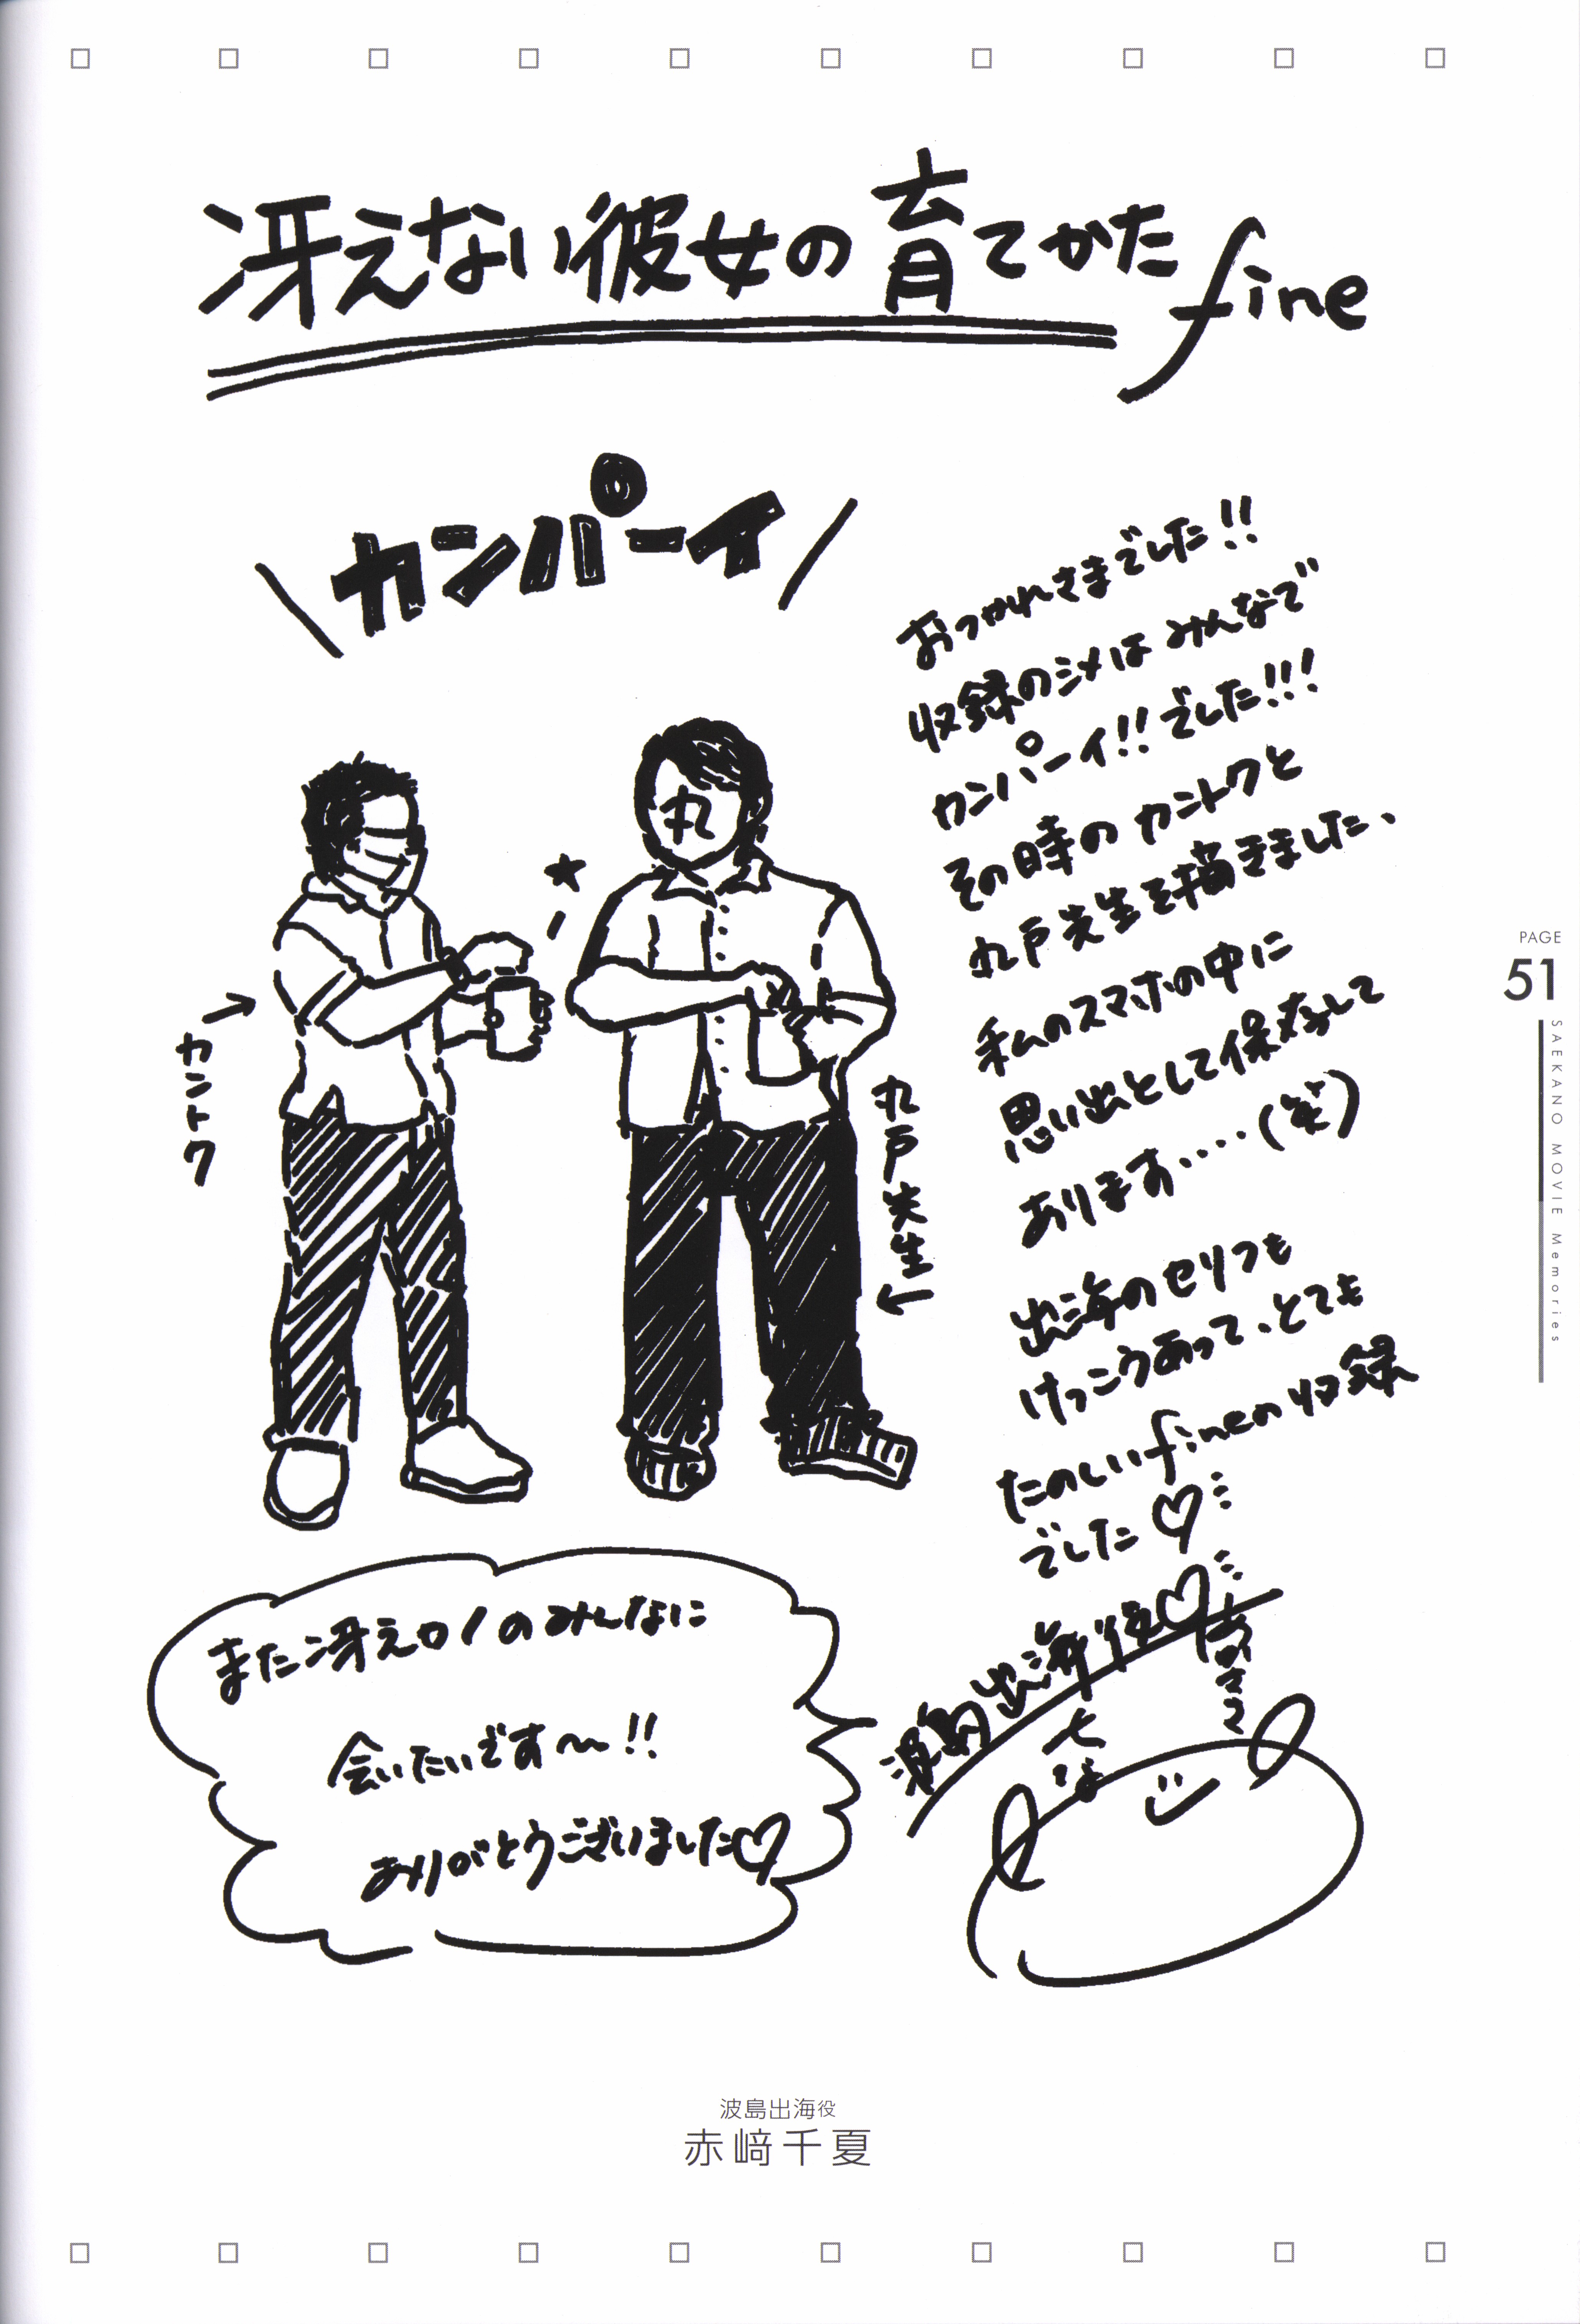 冴えない彼女の育てかたfine
カンパーイ
おつかれさまでした!!
収録のシメはみんなで
カンパーイ!!でした!!!
その時のカントクと
丸戸先生を描きました、
私のスマホの中に
思い出として保存して
あります・・・・・(笑)
出海のセリフも
けっこうあって、とても
たのしいfineの収録
でした♡
丸
カントク
丸戸先生
また冴えカノのみんなに
会いたいです〜!!
ありがとうございました♡
波島出海役♡
あかさき
波島出海役
赤﨑千夏
PAGE
51
SAEKANO MOVIE Memories